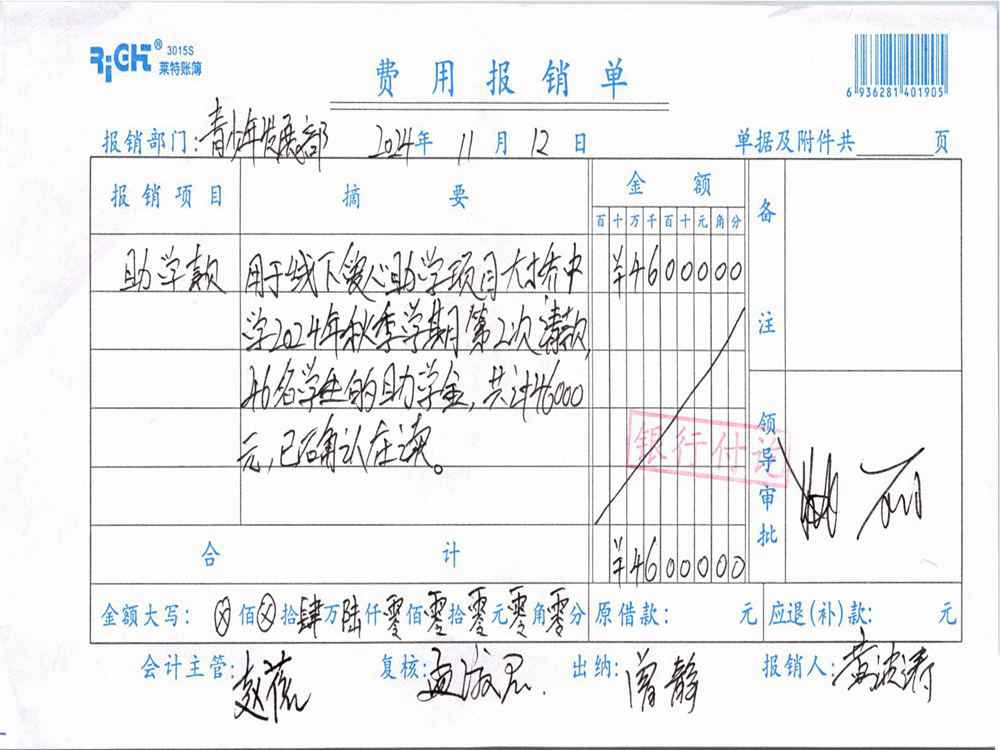 RiCH® 3015S
莱特账簿
费用报销单
6 936281 401905
报销部门:青少年发展部 2024年 11月 12日 单据及附件共 页
报销项目 摘要 金额 备注
百十万千百十元角分
助学款 用于线下爱心助学项目大桥中 ¥4600000
学2024年秋季学期第2次请款,
46名学生的助学金,共计46000
元,已确认在读。
银行付讫
领导审批
合计 ¥4600000
金额大写: ⊗佰⊗拾肆万陆仟零佰零拾零元零角零分 原借款: 元 应退(补)款: 元
会计主管:赵薇 复核:孟淑君. 出纳:曾静 报销人:黄波涛